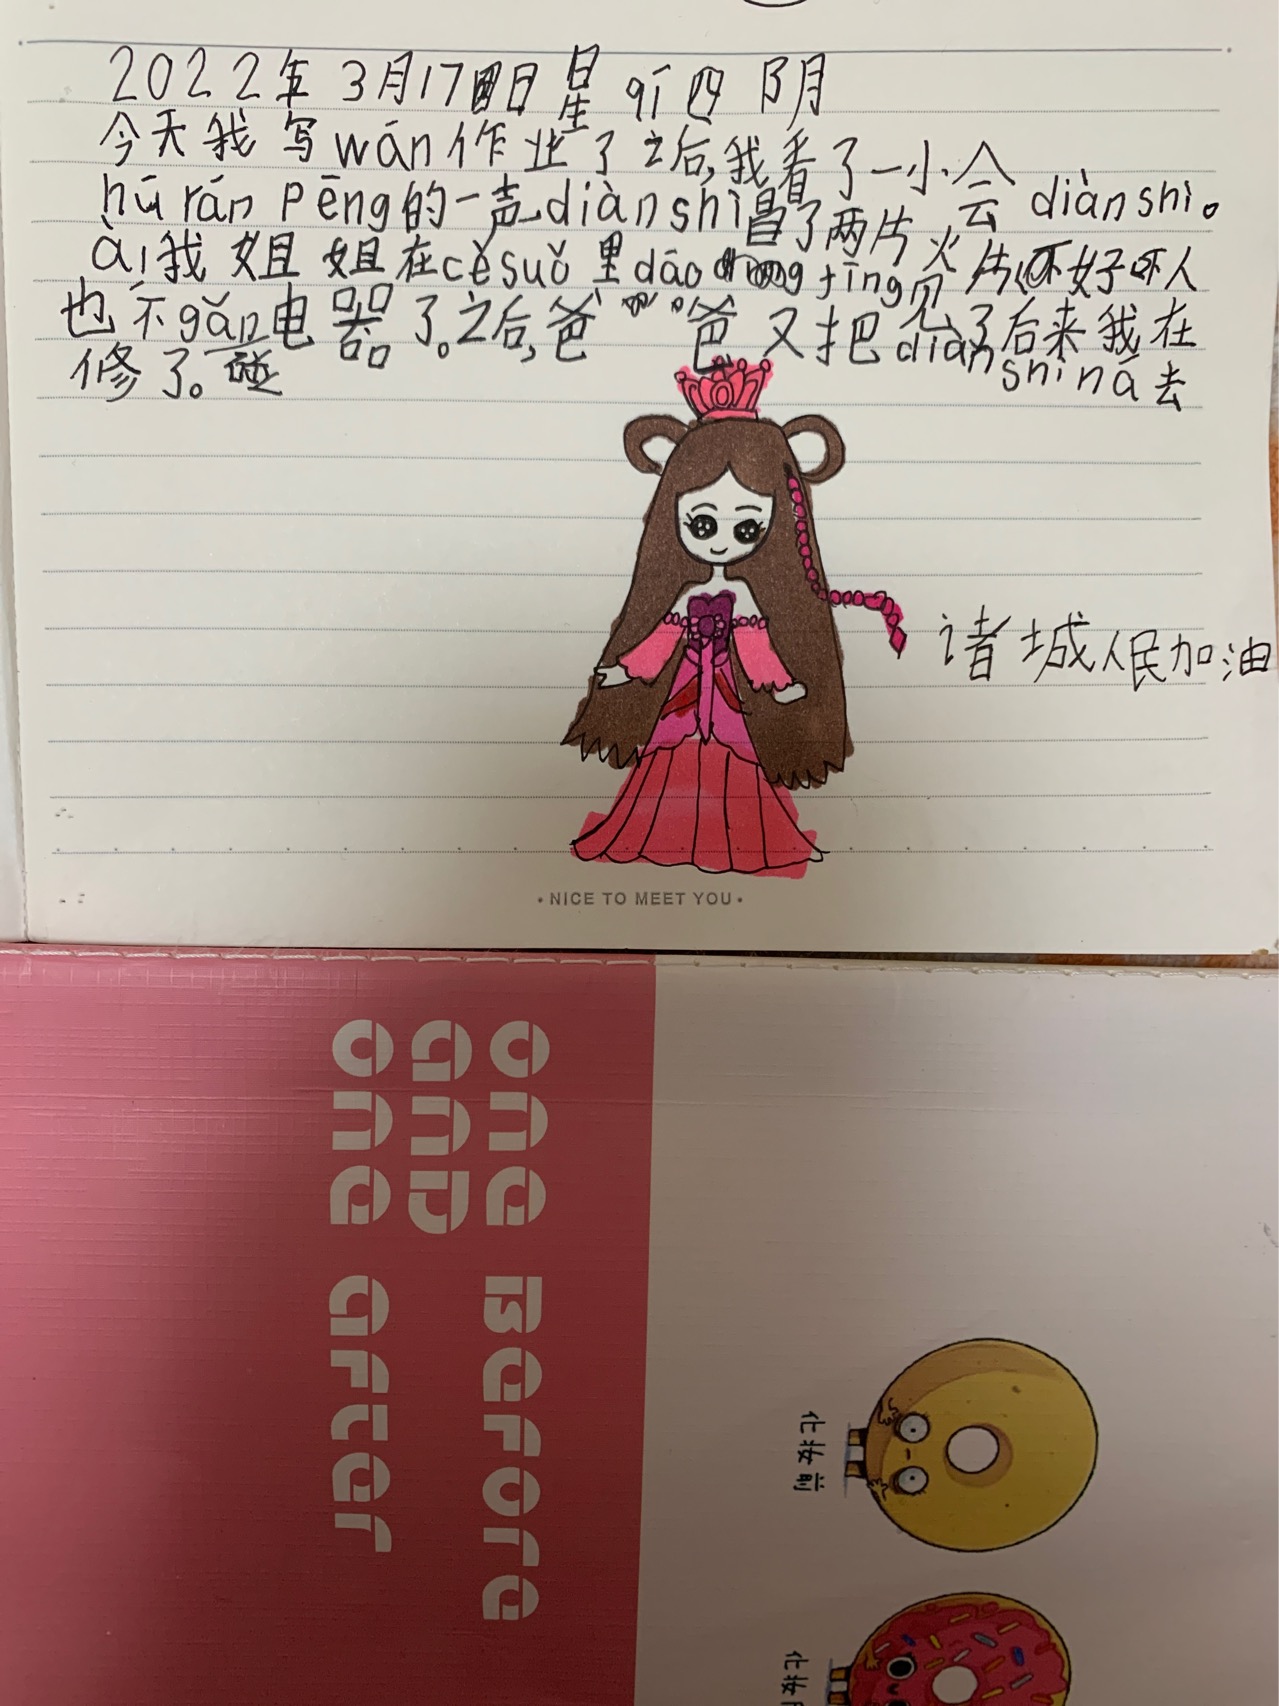 2022年 3月17日 星qī四 阴
今天我 写wán作业了之后,我看了一小会 diànshì。
hū rán pēng的一声diànshì冒了两片火
ài我姐姐在cèsuǒ里dāo jīng见片怀好吓人
也不gǎn 电器了。之后,爸爸又把见了后来我在
修了。碰 diànshì ná去
诸城人民加油
• NICE TO MEET YOU •
one Before
and
one after
化妆前
化妆